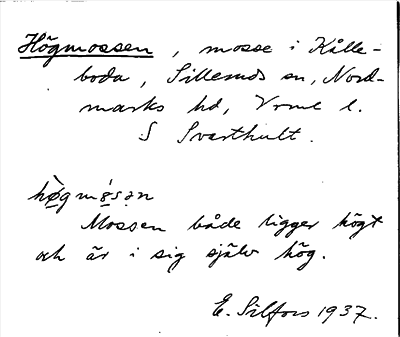 Högmossen, mosse i Kålle-
boda, Silleruds sn, Nord-
marks hd, Vrml l.
S Svarthult.
hø̀gmósən
Mossen både ligger högt
och är i sig själv hög.
E. Silfors 1937.